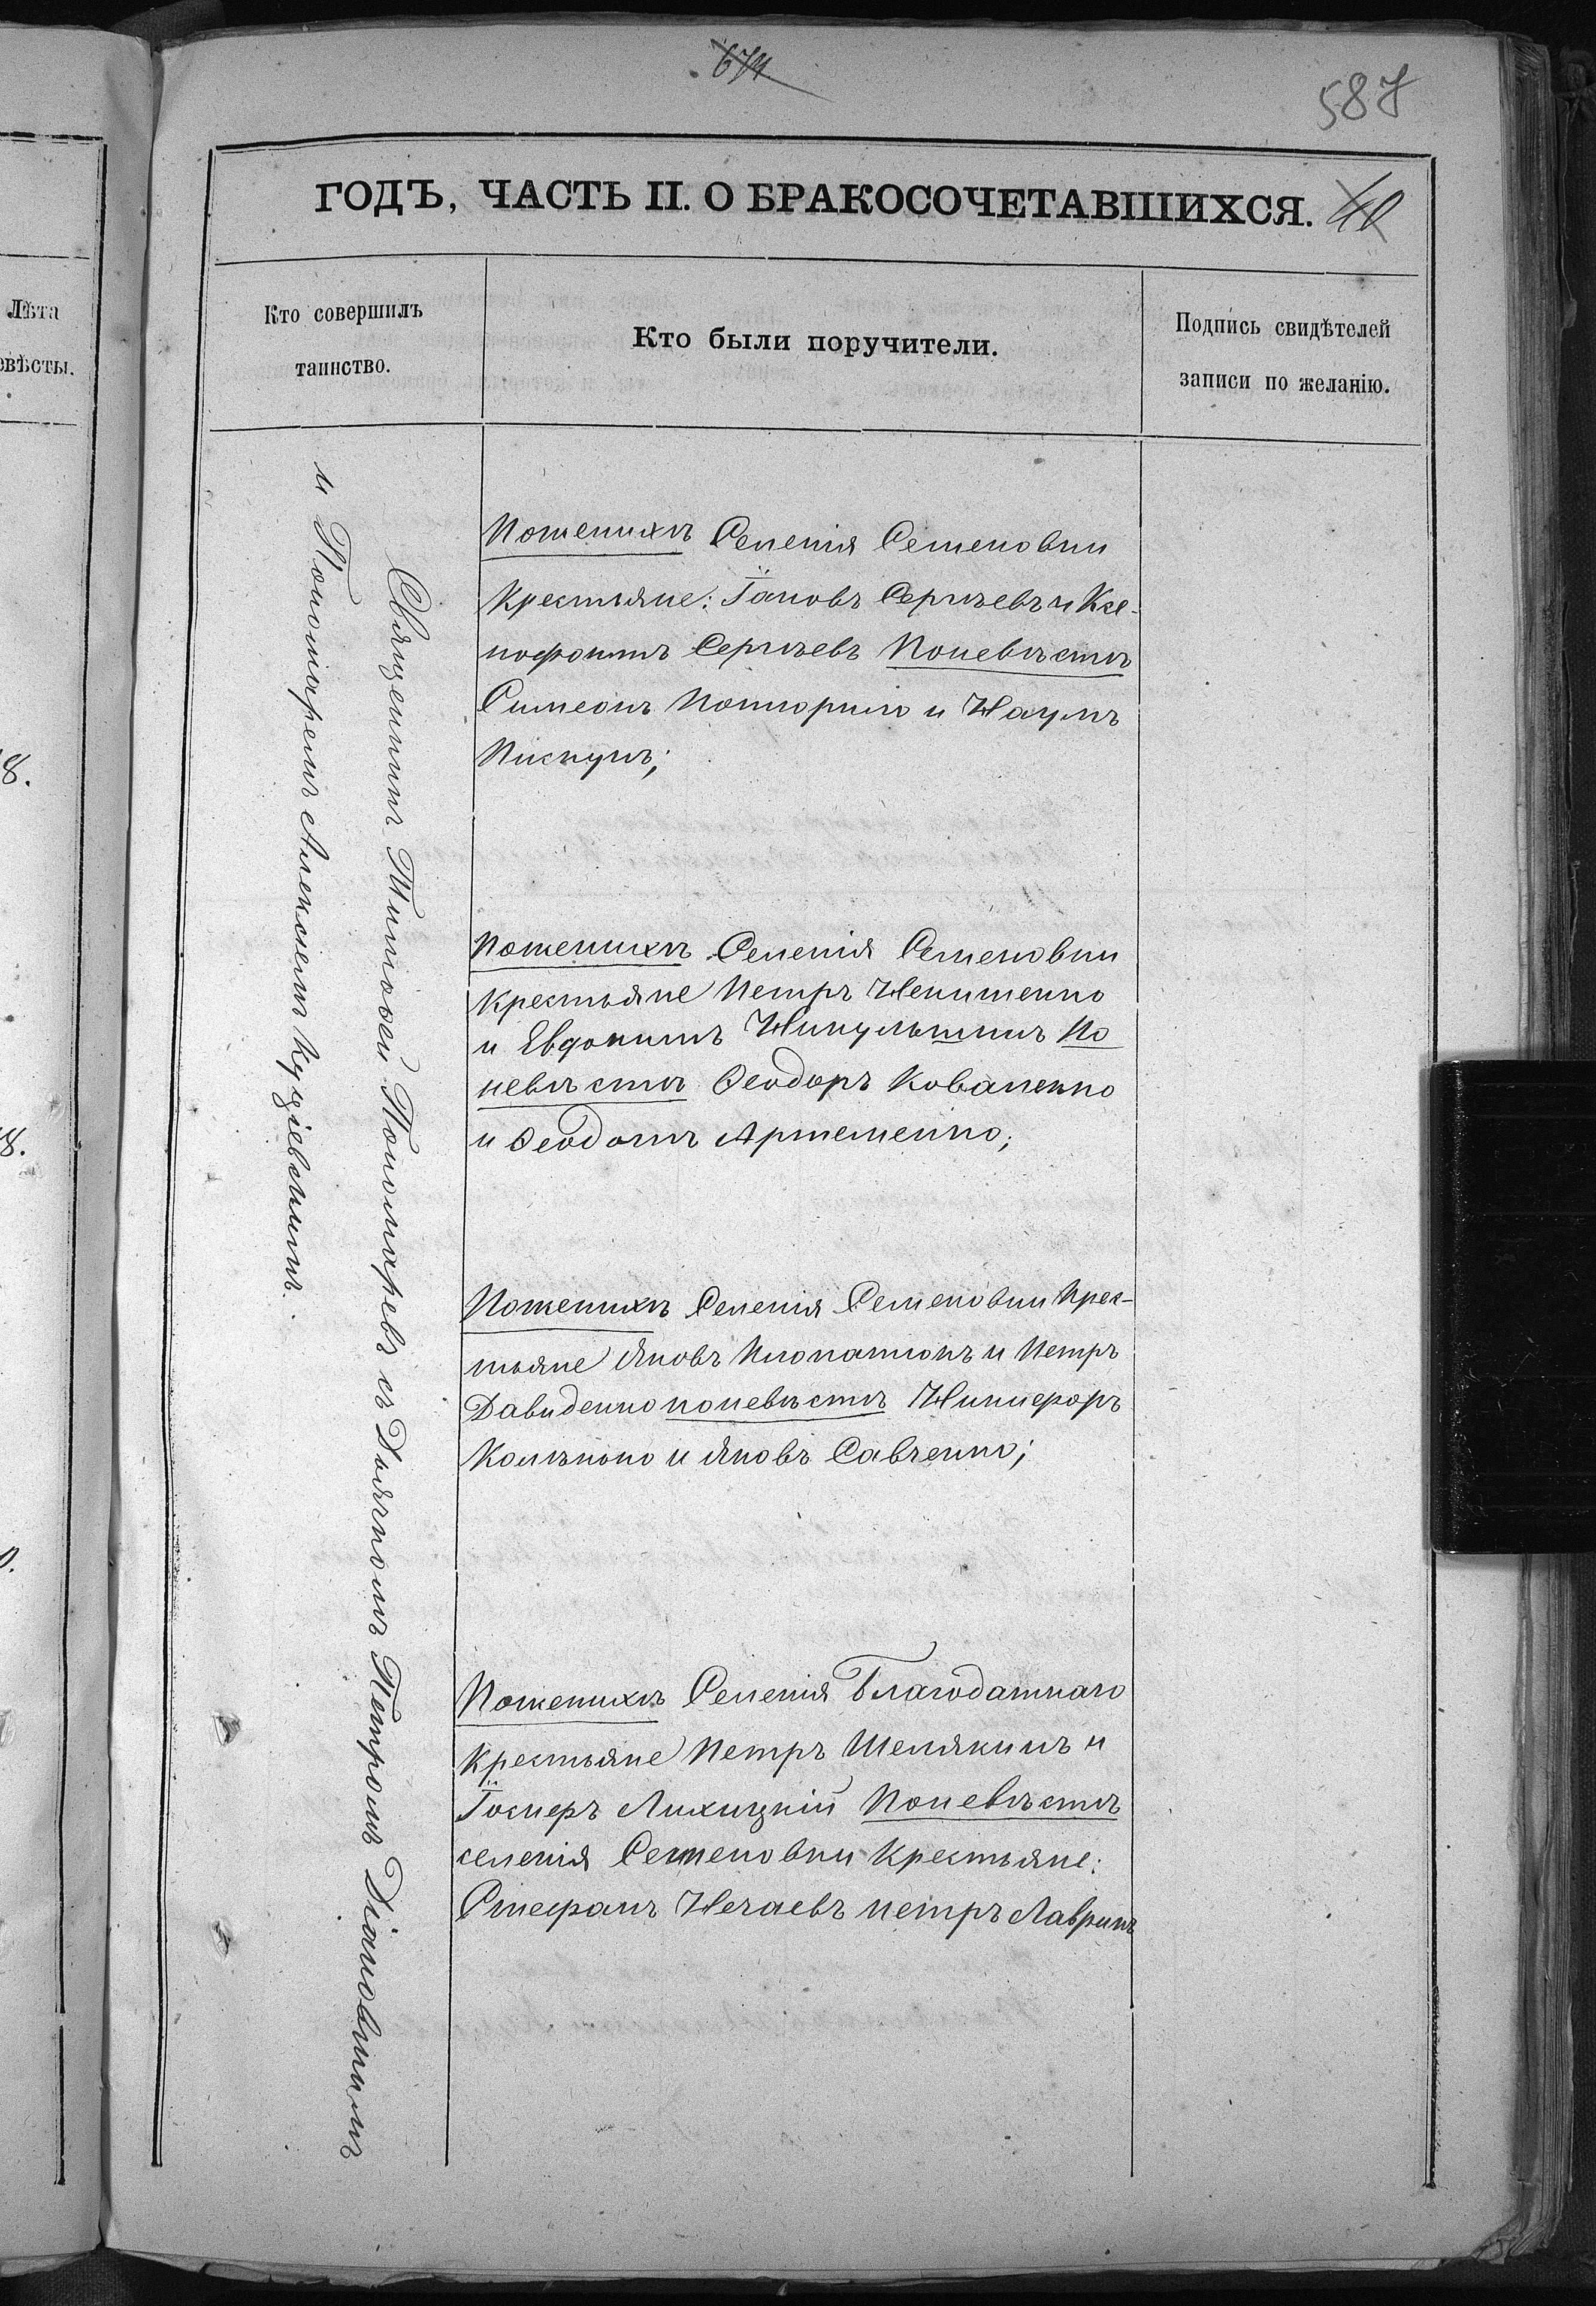 674
587
ГОДЪ, ЧАСТЬ II. О БРАКОСОЧЕТАВШИХСЯ. 40
Лѣта
евѣсты.
Кто совершилъ
таинство.
Кто были поручители.
Подпись свидѣтелей
записи по желанію.
8.
8.
0.
Священникъ Тимофей Пономаревъ съ Дьячкомъ Петромъ Діановшимъ
и Пономаремъ Алексіемъ Куціевскимъ.
Поженихѣ Селенія Семеновки
Крестьяне: Іаковъ Сергѣевъ и Ксе-
нофонтъ Сергѣевъ Поневѣстѣ
Симеонъ и Наумъ
Пискунъ;
Поженихѣ Селенія Семеновки
Крестьяне Петръ
и Евдокимъ Никульшинъ По
невѣстѣ Ѳеодоръ Коваленко
и Ѳеодотъ Артеменко;
Поженихѣ Селенія Семеновки Крес-
тьяне Яковъ и Петръ
Давиденко поневѣстѣ Никифоръ
и Яковъ Савченко;
Поженихѣ Селенія Благодатнаго
Крестьяне Петръ Шелякинъ и
Іосифъ Лихицкій Поневѣстѣ
селенія Семеновки Крестьяне:
Стефанъ Нечаевъ петръ Лавринъ